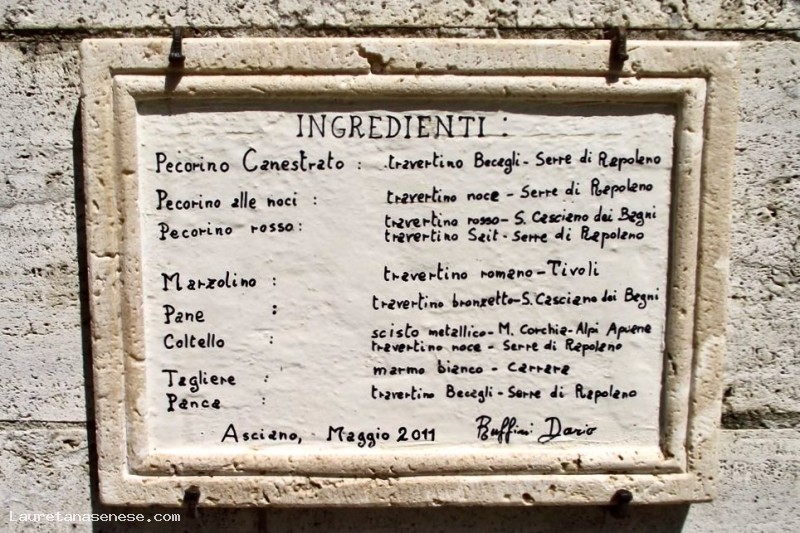 INGREDIENTI :
Pecorino Canestrato : travertino Becagli - Serre di Rapolano
Pecorino alle noci : travertino noce - Serre di Rapolano
Pecorino rosso : travertino rosso - S. Casciano dei Bagni
travertino Sait - Serre di Rapolano
Marzolino : travertino romano - Tivoli
Pane : travertino bronzetto - S. Casciano dei Bagni
Coltello : scisto metallico - M. Corchia - Alpi Apuane
travertino noce - Serre di Rapolano
Tagliere : marmo bianco - Carrara
Panca : travertino Becagli - Serre di Rapolano
Asciano, Maggio 2011 Buffini Dario
Lauretanasenese.com